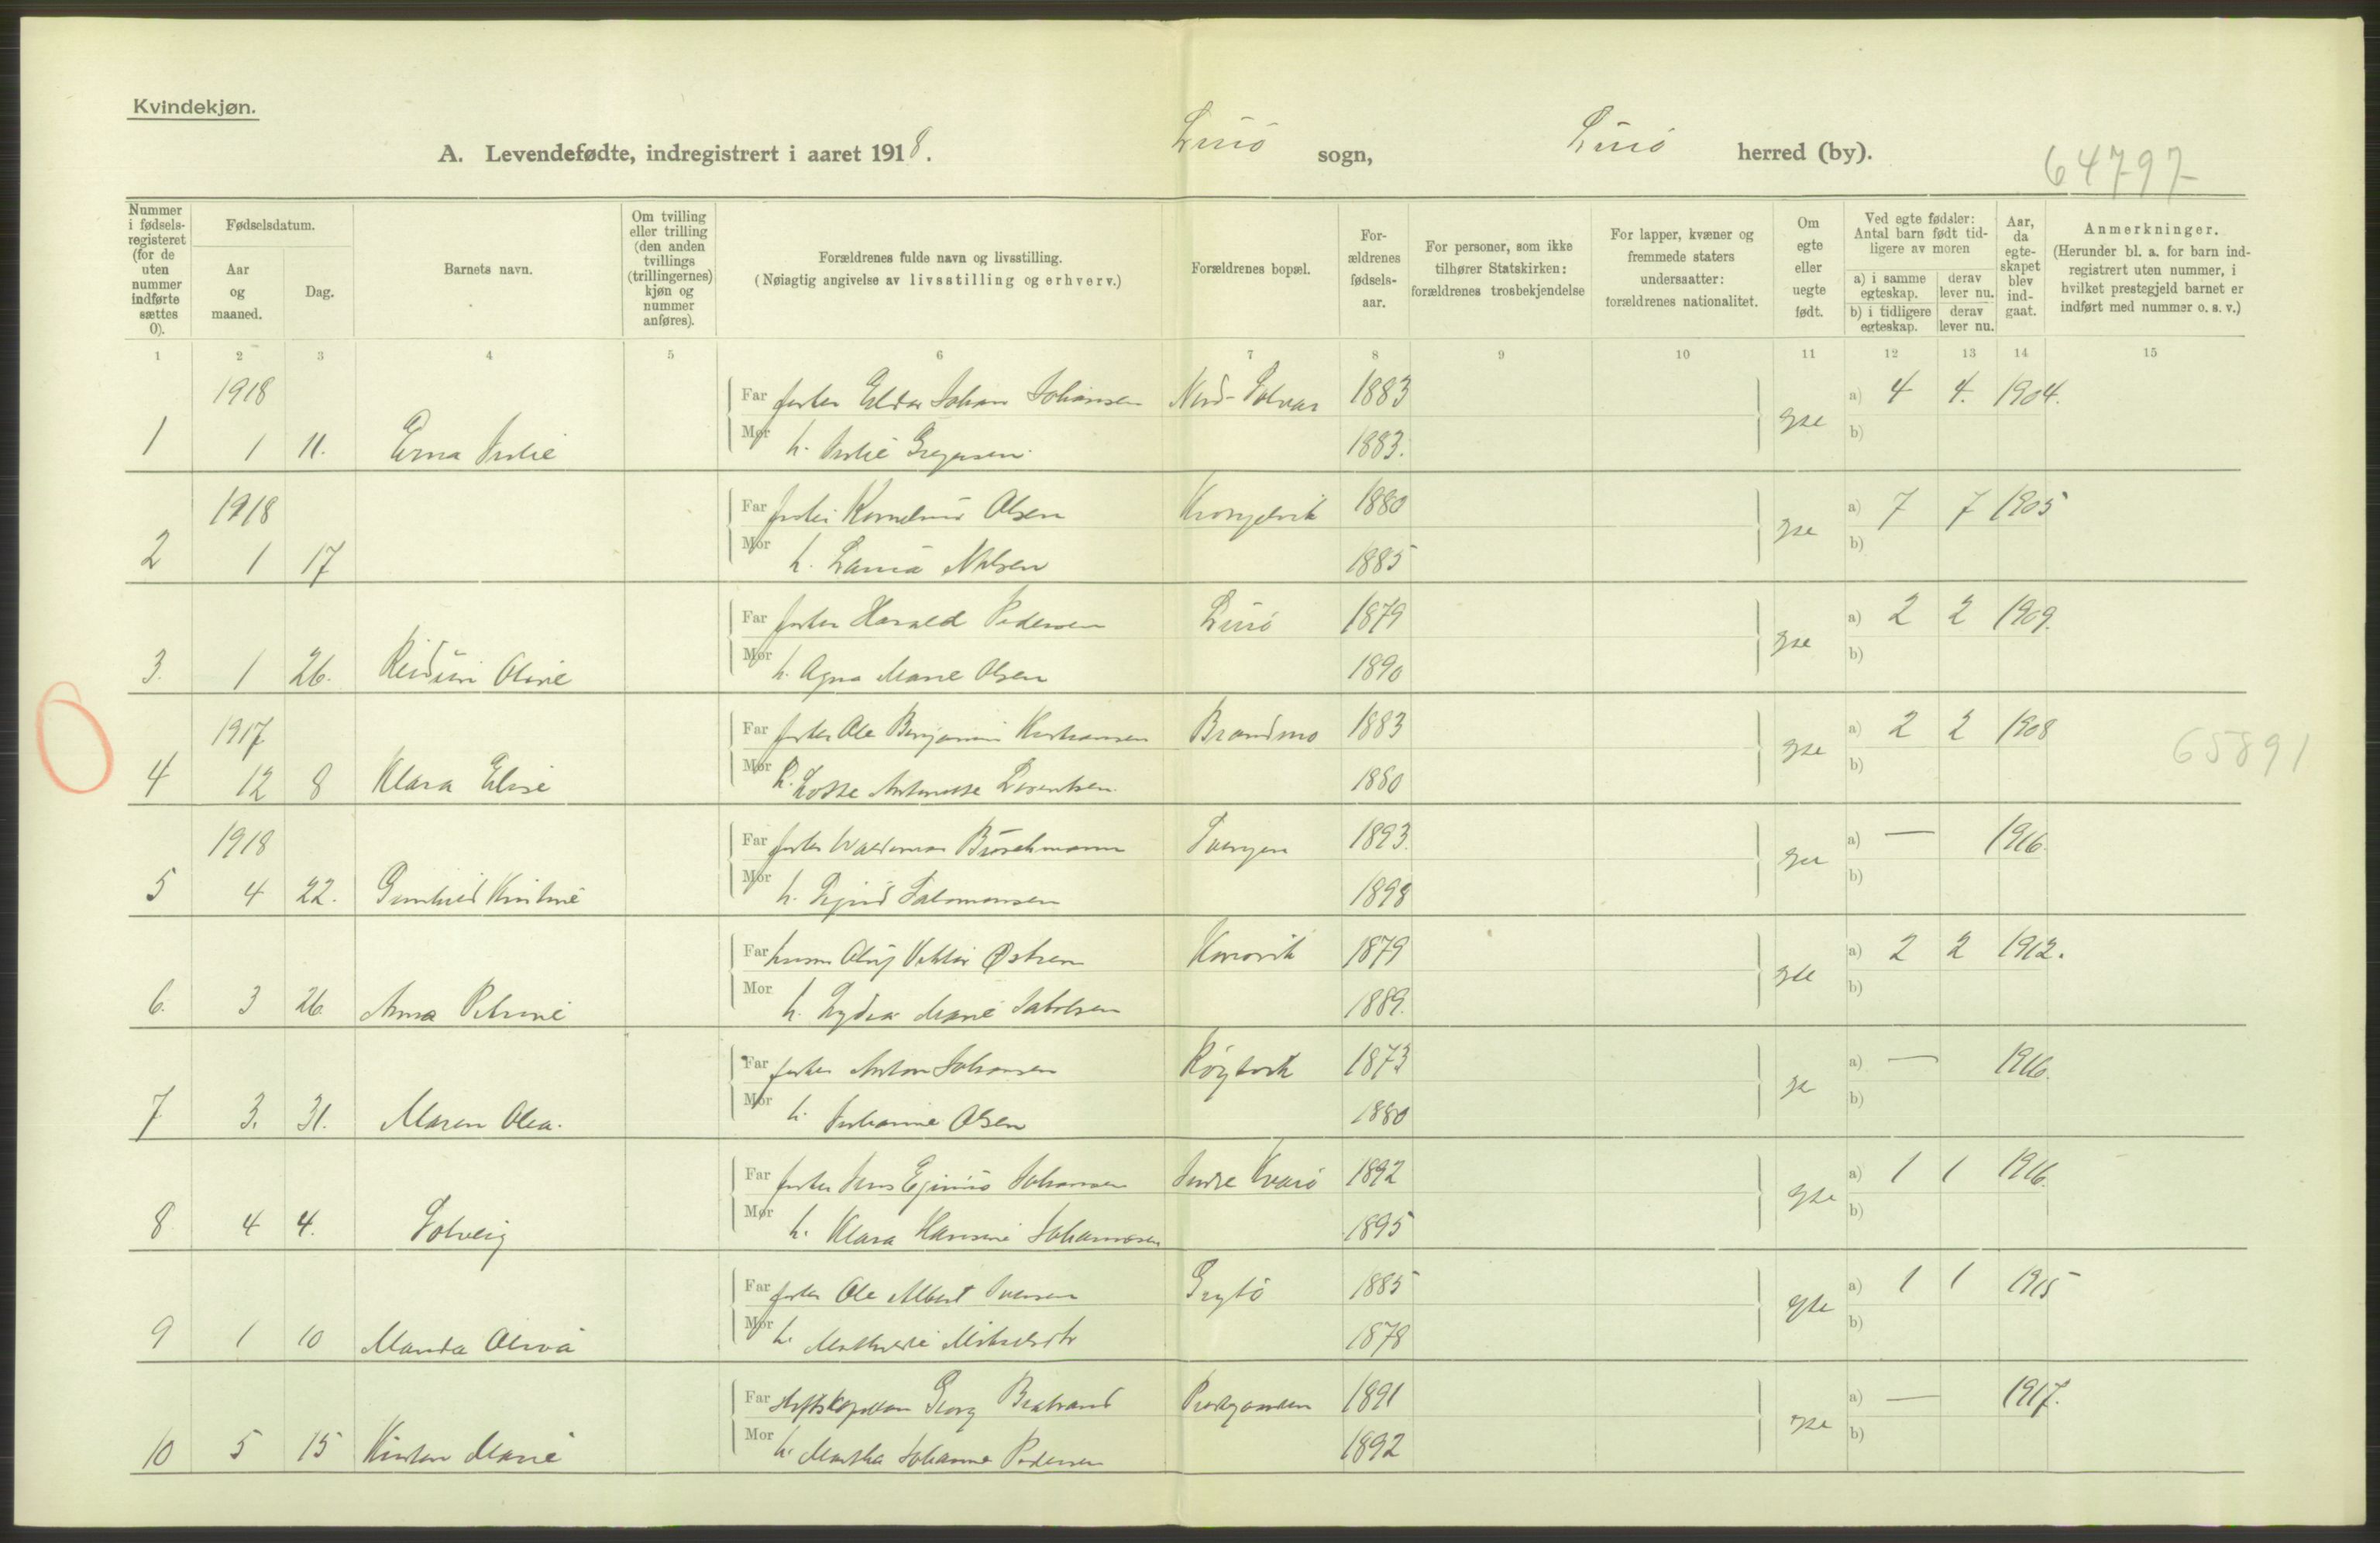 Kvindekjøn.
A. Levendefødte, indregistrert i aaret 1918. Lurø sogn, Lurø herred (by).
64797
Nummer i fødsels-registeret (for de uten nummer indførte sættes 0).
Fødselsdatum.
Aar og maaned.
Dag.
Barnets navn.
Om tvilling eller trilling (den anden tvillings (trillingernes) kjøn og nummer anføres).
Forældrenes fulde navn og livsstilling.
(Nøiagtig angivelse av livsstilling og erhverv.)
Forældrenes bopæl.
For-ældrenes fødsels-aar.
For personer, som ikke tilhører Statskirken: forældrenes trosbekjendelse
For lapper, kvæner og fremmede staters undersaatter: forældrenes nationalitet.
Om egte eller uegte født.
Ved egte fødsler: Antal barn født tid-ligere av moren
a) i samme egteskap. derav lever nu.
b) i tidligere egteskap. derav lever nu.
Aar, da egte-skapet blev ind-gaat.
Anmerkninger.
(Herunder bl. a. for barn ind-registrert uten nummer, i hvilket prestegjeld barnet er indført med nummer o. s. v.)
1 2 3 4 5 6 7 8 9 10 11 12 13 14 15
1918 Far fisker Johan Johansen Nord-Solvær 1883 a) 4 4. 1904.
1 1 11. Erna Julie Mor h. Julie 1883. egte b)
1918 Far fisker Kornelius Olsen 1880 a) 7 7 1905
2 1 17 Mor h. Laura Nilsen 1885 egte b)
Far fisker Harald Pedersen Lurø 1879 a) 2 2 1909.
3. 1 26. Reidun Oline Mor h. Agna Marie Olsen 1890 egte b)
1917 Far fisker Ole Benjamin Kristiansen 1883 a) 2 2 1908
4 12 8 Klara Elise Mor h. Lorentsen 1880 egte b) 65891
1918 Far fisker Waldemar Buschmann 1893. a) — 1916.
5 4 22. Gunhild Kristine Mor h. Salomonsen 1898 egte b)
Far Oluf Viktor 1879 a) 2 2 1912.
6. 3 26 Anna Petrine Mor h. Lydia Marie Jakobsen 1889. egte b)
Far fisker Anton Johansen 1873 a) — 1916.
7 3. 31. Maren Olea. Mor h. Johanne Olsen 1880 b)
Far fisker Jens Johansen Indre Kvarø 1892 a) 1 1 1916.
8 4 4. Solveig Mor h. Klara Hansine Johannesen 1895 egte b)
Far fisker Ole Albert 1885 a) 1 1 1915
9 1 10 Manda Mor h. 1878 egte b)
Far Georg 1891 a) — 1917.
10 5 15 Kirsten Marie Mor h. Martha Johanne Pedersen 1892 egte b)